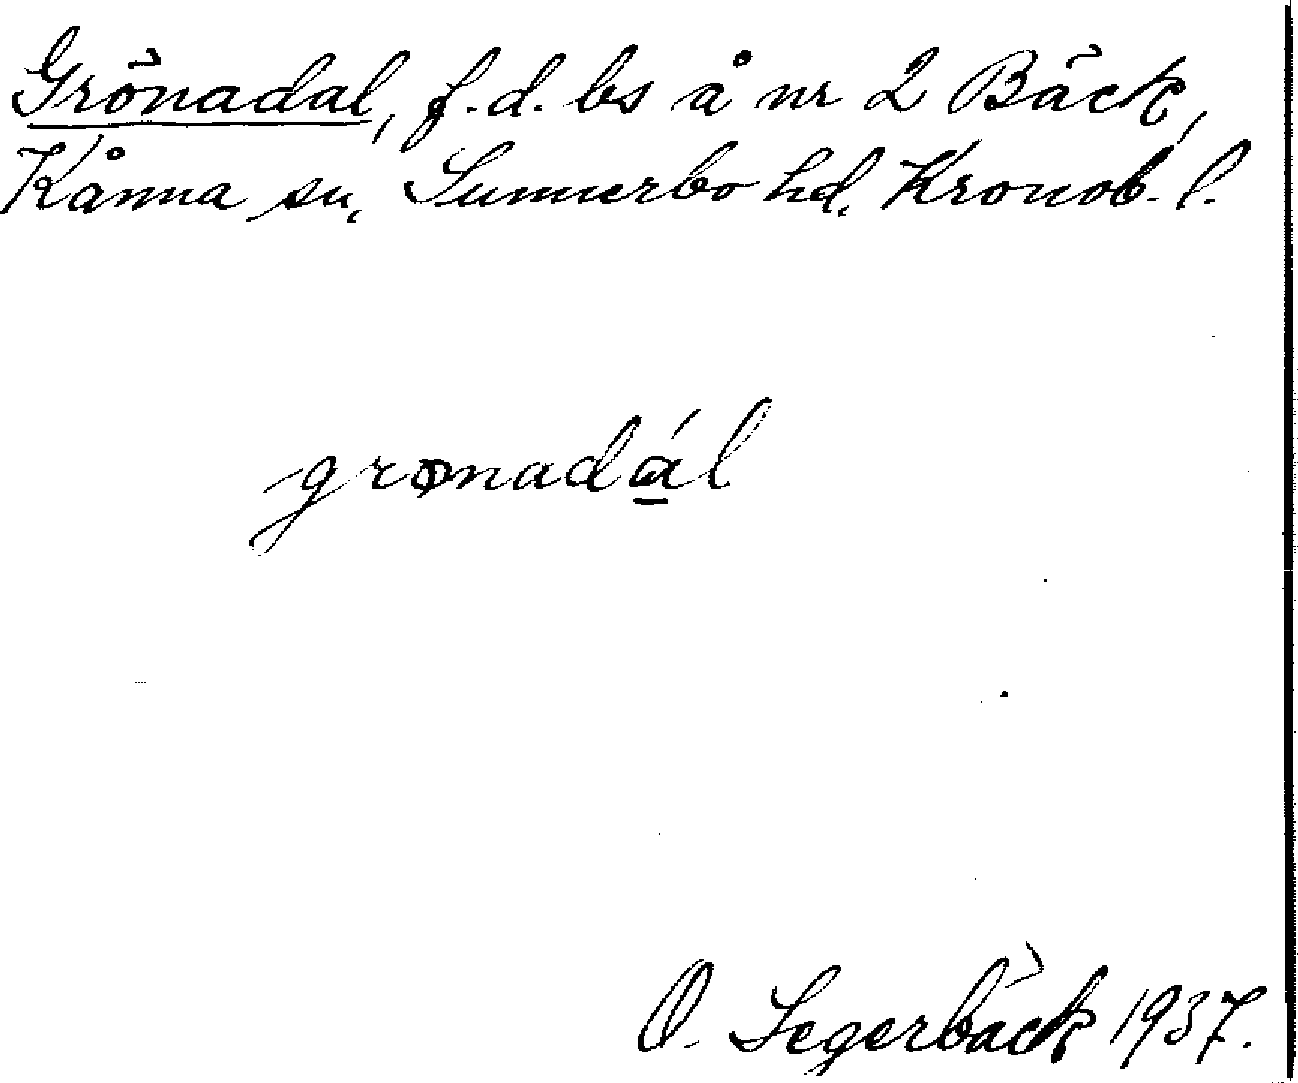 Grönadal, f.d. bs å nr 2 Bäck,
Kånna sn, Sunnerbo hd, Kronob. l.
grønadál
O. Segerbäck 1937.